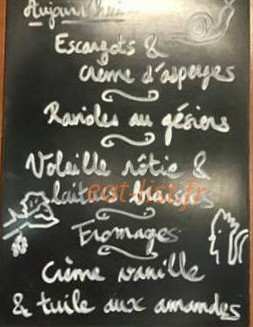 Aujourd'hui
Escargots &
crème d'asperges
Ravioles au gésiers
Volaille rôtie &
laitues braisées
Fromages
Crème vanille
& tuile aux amandes